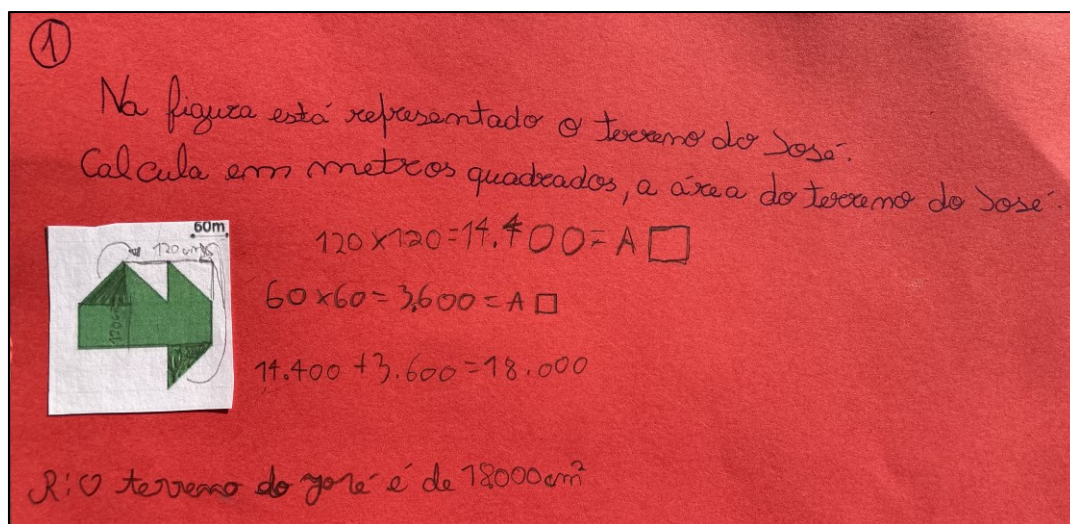 1
Na figura está representado o terreno do José.
Calcula em metros quadrados, a área do terreno do José.
60m
120cm
120cm
120×120=14.400=A□
60×60=3.600=A□
14.400+3.600=18.000
R:O terreno do José é de 18000cm²